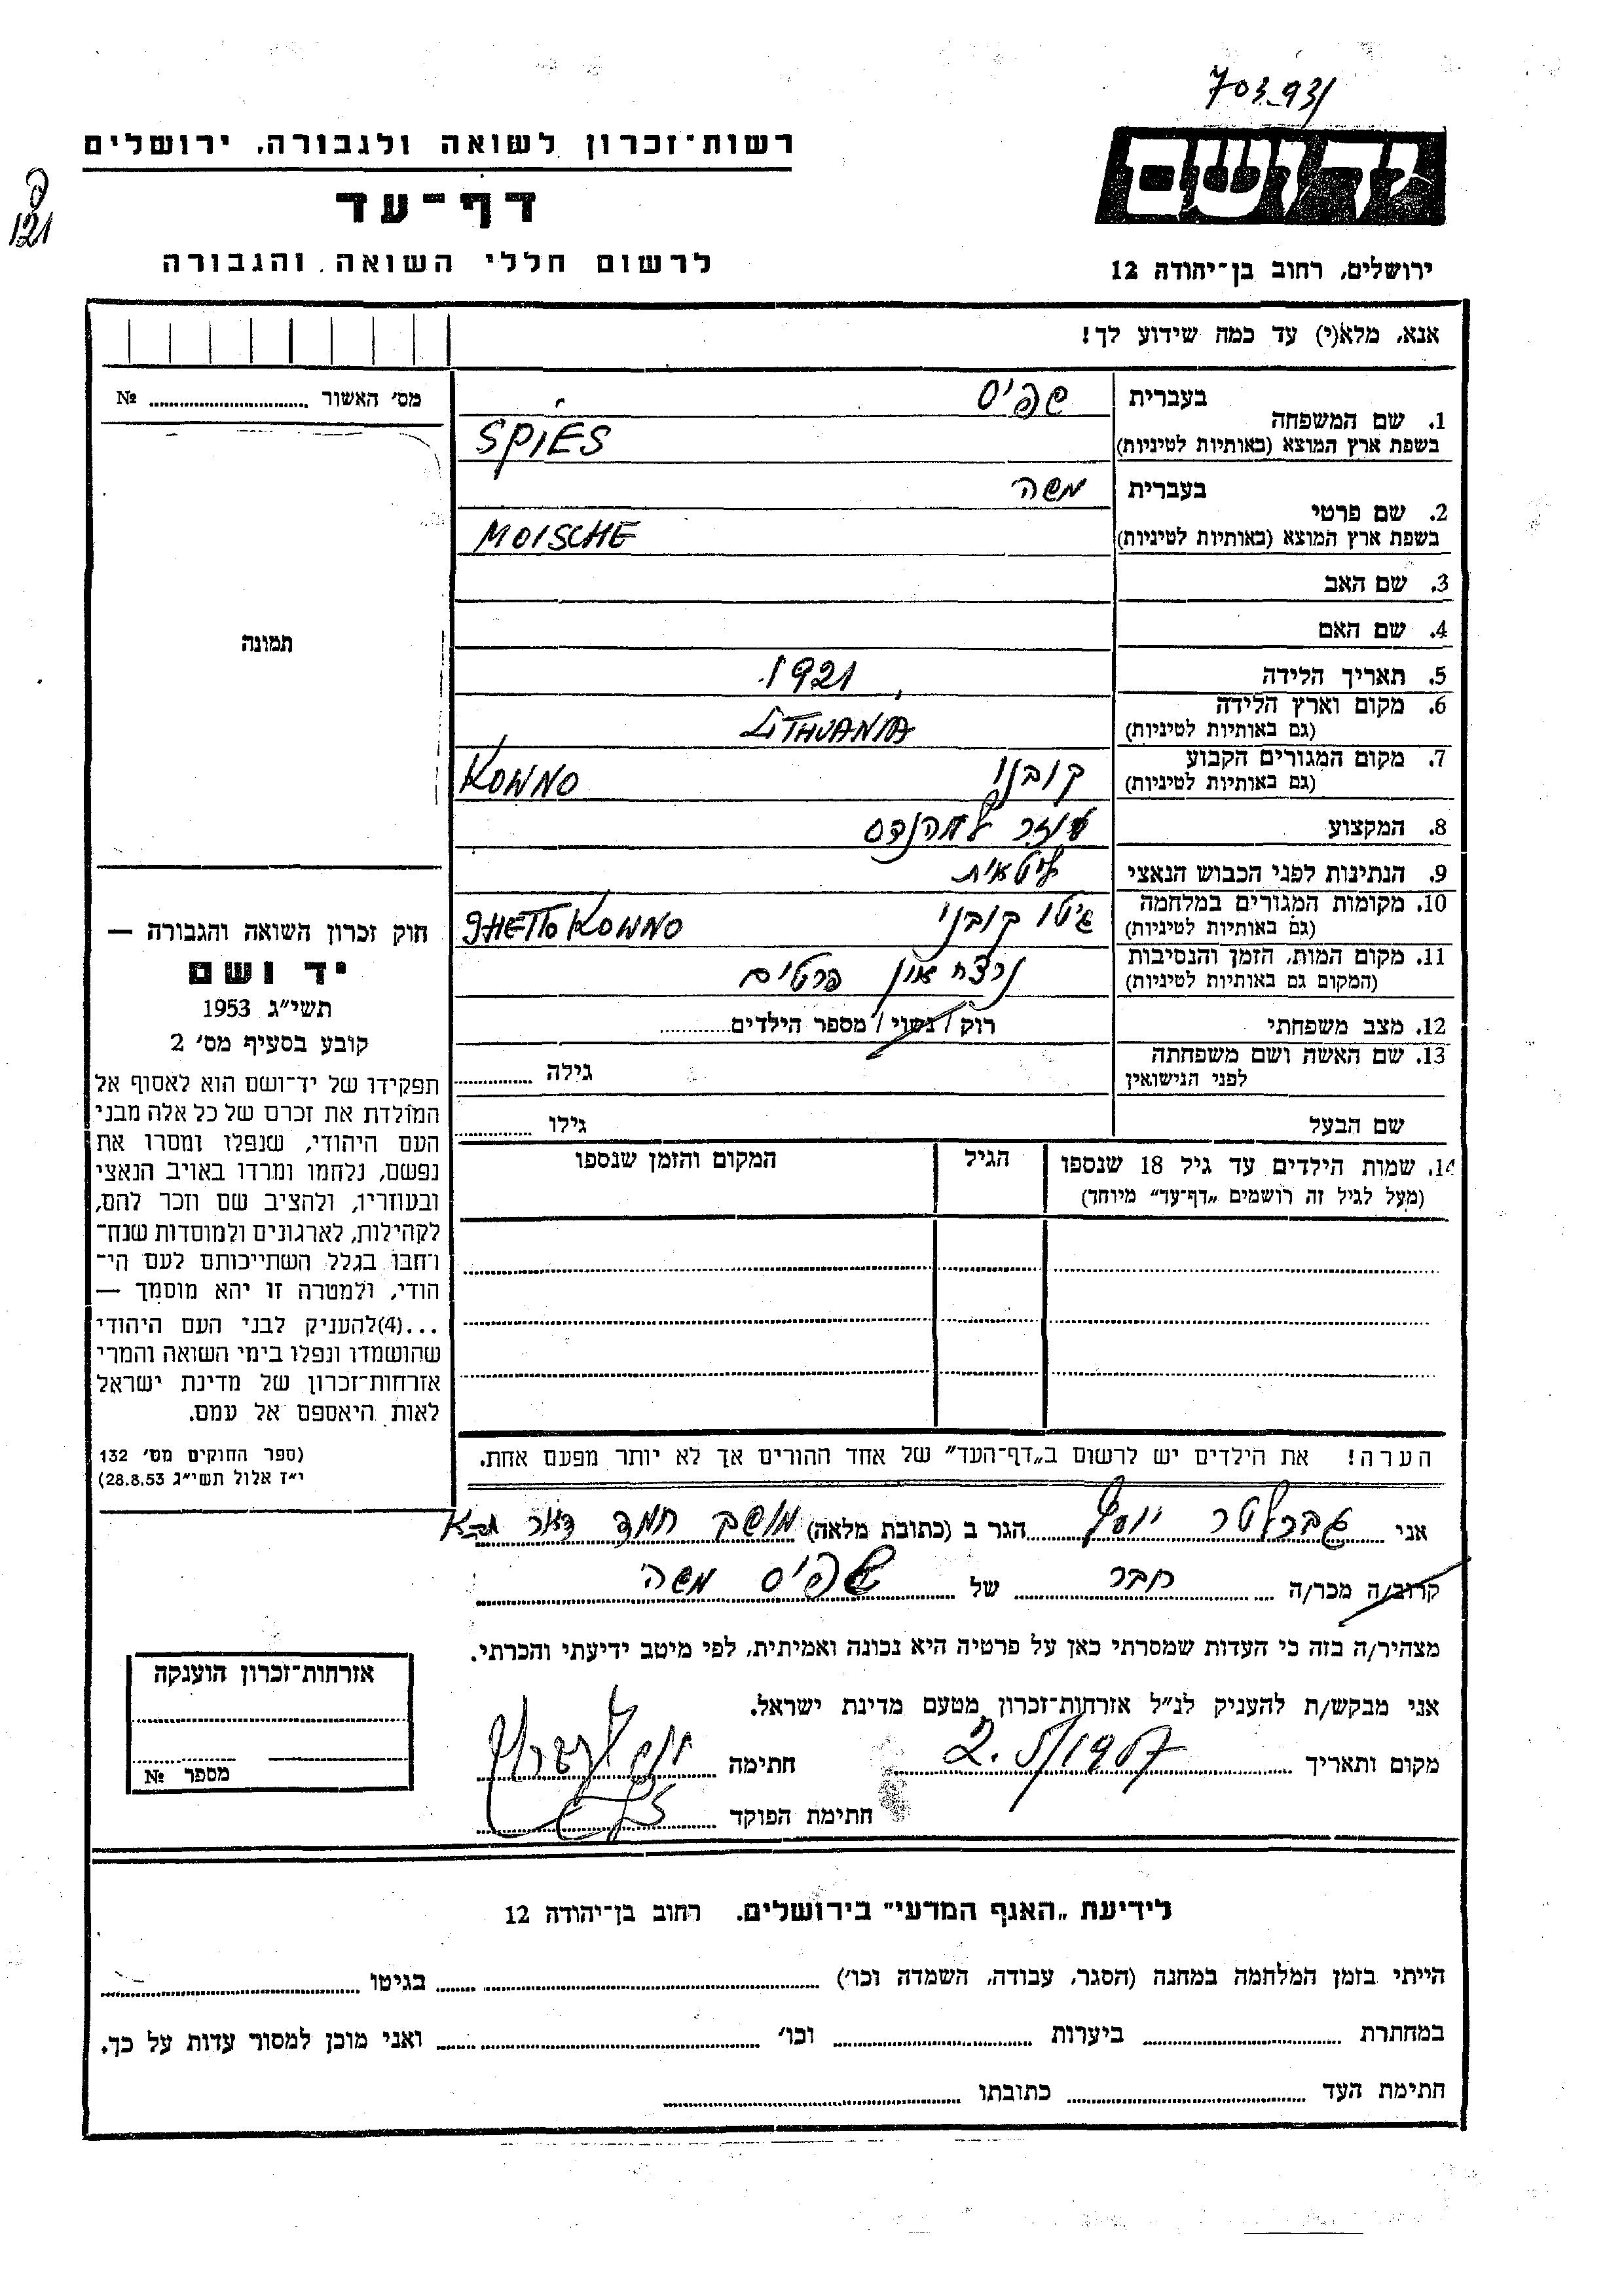 703.931
רשות־זכרון לשואה ולגבורה, ירושלים
דף־עד
לרשום חללי השואה והגבורה
יד ושם
ירושלים, רחוב בן־יהודה 12
121
אנא, מלא(י) עד כמה שידוע לך!
מס׳ האשור № 
1. שם המשפחה
בעברית שפיס
בשפת ארץ המוצא (באותיות לטיניות) SPIES
2. שם פרטי
בעברית משה
בשפת ארץ המוצא (באותיות לטיניות) MOISCHE
3. שם האב
4. שם האם
תמונה
5. תאריך הלידה 1921
6. מקום וארץ הלידה
(גם באותיות לטיניות) LITHUANIA
7. מקום המגורים הקבוע קובנו
(גם באותיות לטיניות) KOWNO
8. המקצוע עוזר למהנדס
9. הנתינות לפני הכבוש הנאצי ליטאית
10. מקומות המגורים במלחמה גיטו קובנו
(גם באותיות לטיניות) GHETTO KOWNO
11. מקום המות, הזמן והנסיבות נרצח אין פרטים
(המקום גם באותיות לטיניות)
12. מצב משפחתי רוק / נשוי / מספר הילדים
13. שם האשה ושם משפחתה
לפני הנישואין גילה
שם הבעל גילו
14. שמות הילדים עד גיל 18 שנספו הגיל המקום והזמן שנספו
(מעל לגיל זה רושמים „דף־עד״ מיוחד)
חוק זכרון השואה והגבורה —
יד ושם
תשי״ג 1953
קובע בסעיף מס׳ 2
תפקידו של יד־ושם הוא לאסוף אל
המולדת את זכרם של כל אלה מבני
העם היהודי, שנפלו ומסרו את
נפשם, נלחמו ומרדו באויב הנאצי
ובעוזריו, ולהציב שם וזכר להם,
לקהילות, לארגונים ולמוסדות שנח־
רבו בגלל השתייכותם לעם הי־
הודי, ולמטרה זו יהא מוסמך —
...(4)להעניק לבני העם היהודי
שהושמדו ונפלו בימי השואה והמרי
אזרחות־זכרון של מדינת ישראל
לאות היאספם אל עמם.
(ספר החוקים מס׳ 132
י״ז אלול תשי״ג 28.8.53)
הערה! את הילדים יש לרשום ב„דף־העד״ של אחד ההורים אך לא יותר מפעם אחת.
אני יוסף הגר ב (כתובת מלאה) מושב חמד דאר
קרוב/ה מכר/ה חבר של שפיס משה
מצהיר/ה בזה כי העדות שמסרתי כאן על פרטיה היא נכונה ואמיתית, לפי מיטב ידיעתי והכרתי.
אני מבקש/ת להעניק לנ״ל אזרחות־זכרון מטעם מדינת ישראל.
מקום ותאריך חתימה
חתימת הפוקד
אזרחות־זכרון הוענקה
מספר №
לידיעת „האגף המדעי״ בירושלים. רחוב בן־יהודה 12
הייתי בזמן המלחמה במחנה (הסגר, עבודה, השמדה וכו׳) בגיטו
במחתרת ביערות וכו׳ ואני מוכן למסור עדות על כך.
חתימת העד כתובתו